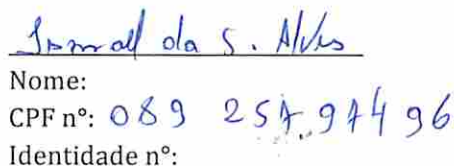 da S. Alves
Nome:
CPF nº: 089 257.974 96
Identidade nº: